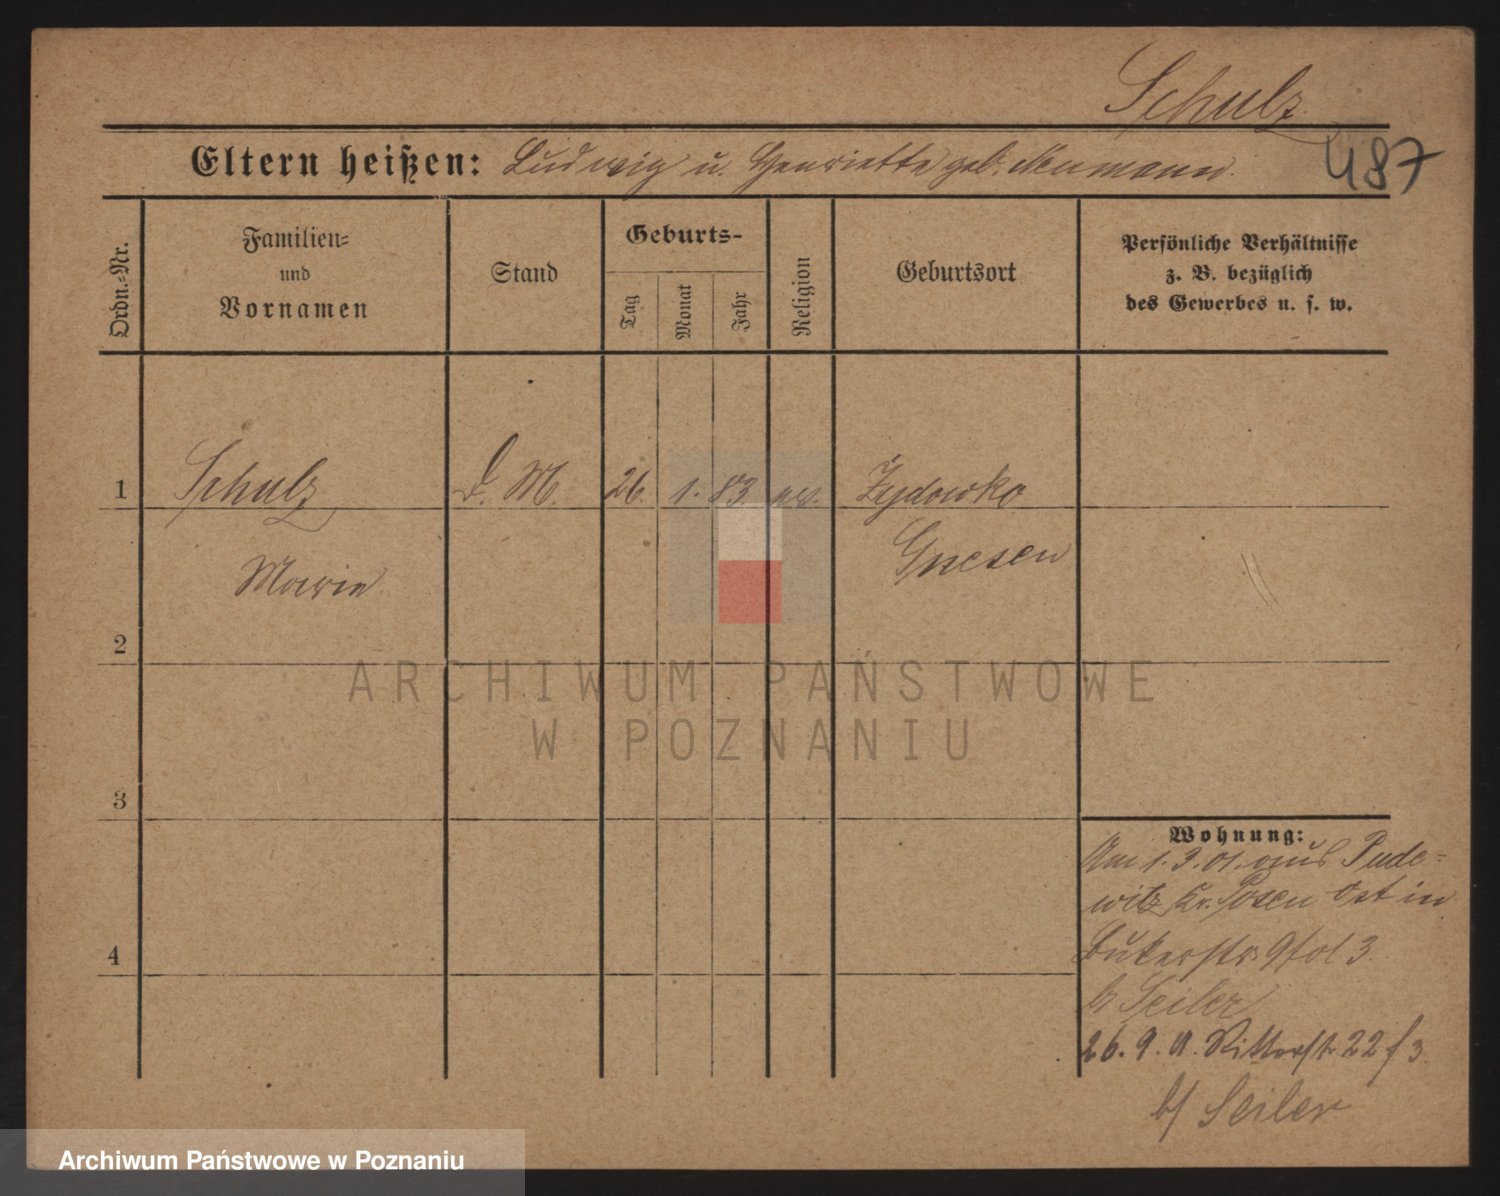 Schulz
487
Eltern heißen: Ludwig u. Henriette geb. Neumann.
Ordn.-Nr.
Familien-
und
Vornamen
Stand
Geburts-
Tag
Monat
Jahr
Religion
Geburtsort
Persönliche Verhältnisse
z. B. bezüglich
des Gewerbes u. s. w.
1 Schulz D. M. 26. 1. 83 ev. Żydowko
Gnesen
Marie
2
3
4
Wohnung:
Am 1.3.01. aus Pude-
witz Kr. Posen Ost in
Bukerstr. 9 3.
b/ Seiler
26. 9. Ritterstr 22 f 3.
b/ Seiler
ARCHIWUM PAŃSTWOWE
W POZNANIU
Archiwum Państwowe w Poznaniu